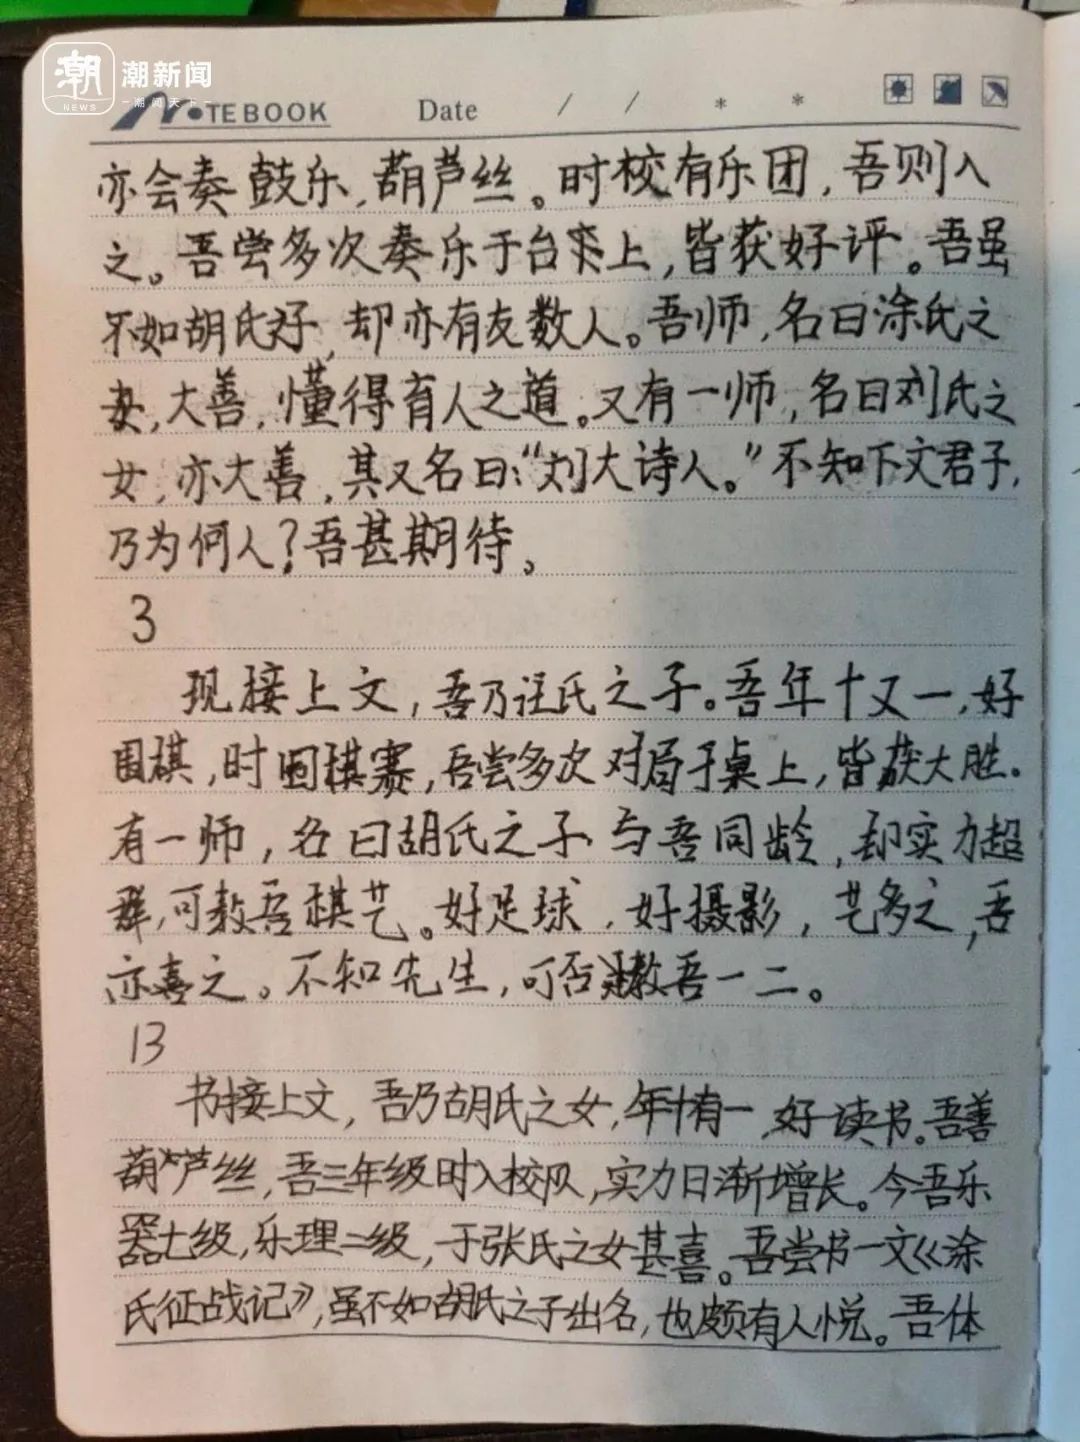 潮新闻
NEWS
潮闻天下
NOTEBOOK Date / / * *
亦会奏鼓乐,葫芦丝。时校有乐团,吾则入
之。吾尝多次奏乐于台上,皆获好评。吾虽
不如胡氏好,却亦有友数人。吾师,名曰涂氏之
妻,大善,懂得育人之道。又有一师,名曰刘氏之
女,亦大善,其又名曰:“刘大诗人。”不知下文君子,
乃为何人?吾甚期待。
3
现接上文,吾乃汪氏之子。吾年十又一,好
围棋,时围棋赛,吾尝多次对局于桌上,皆获大胜。
有一师,名曰胡氏之子与吾同龄,却实力超
群,可教吾棋艺。好足球,好摄影,艺多之,吾
亦喜之。不知先生,可否教吾一二。
13
书接上文,吾乃胡氏之女,年十有一,好读书。吾善
葫芦丝,吾三年级时入校队,实力日渐增长。今吾乐
器七级,乐理二级,于张氏之女甚喜。吾尝书一文《涂
氏征战记》,虽不如胡氏之子出名,也颇有人悦。吾体